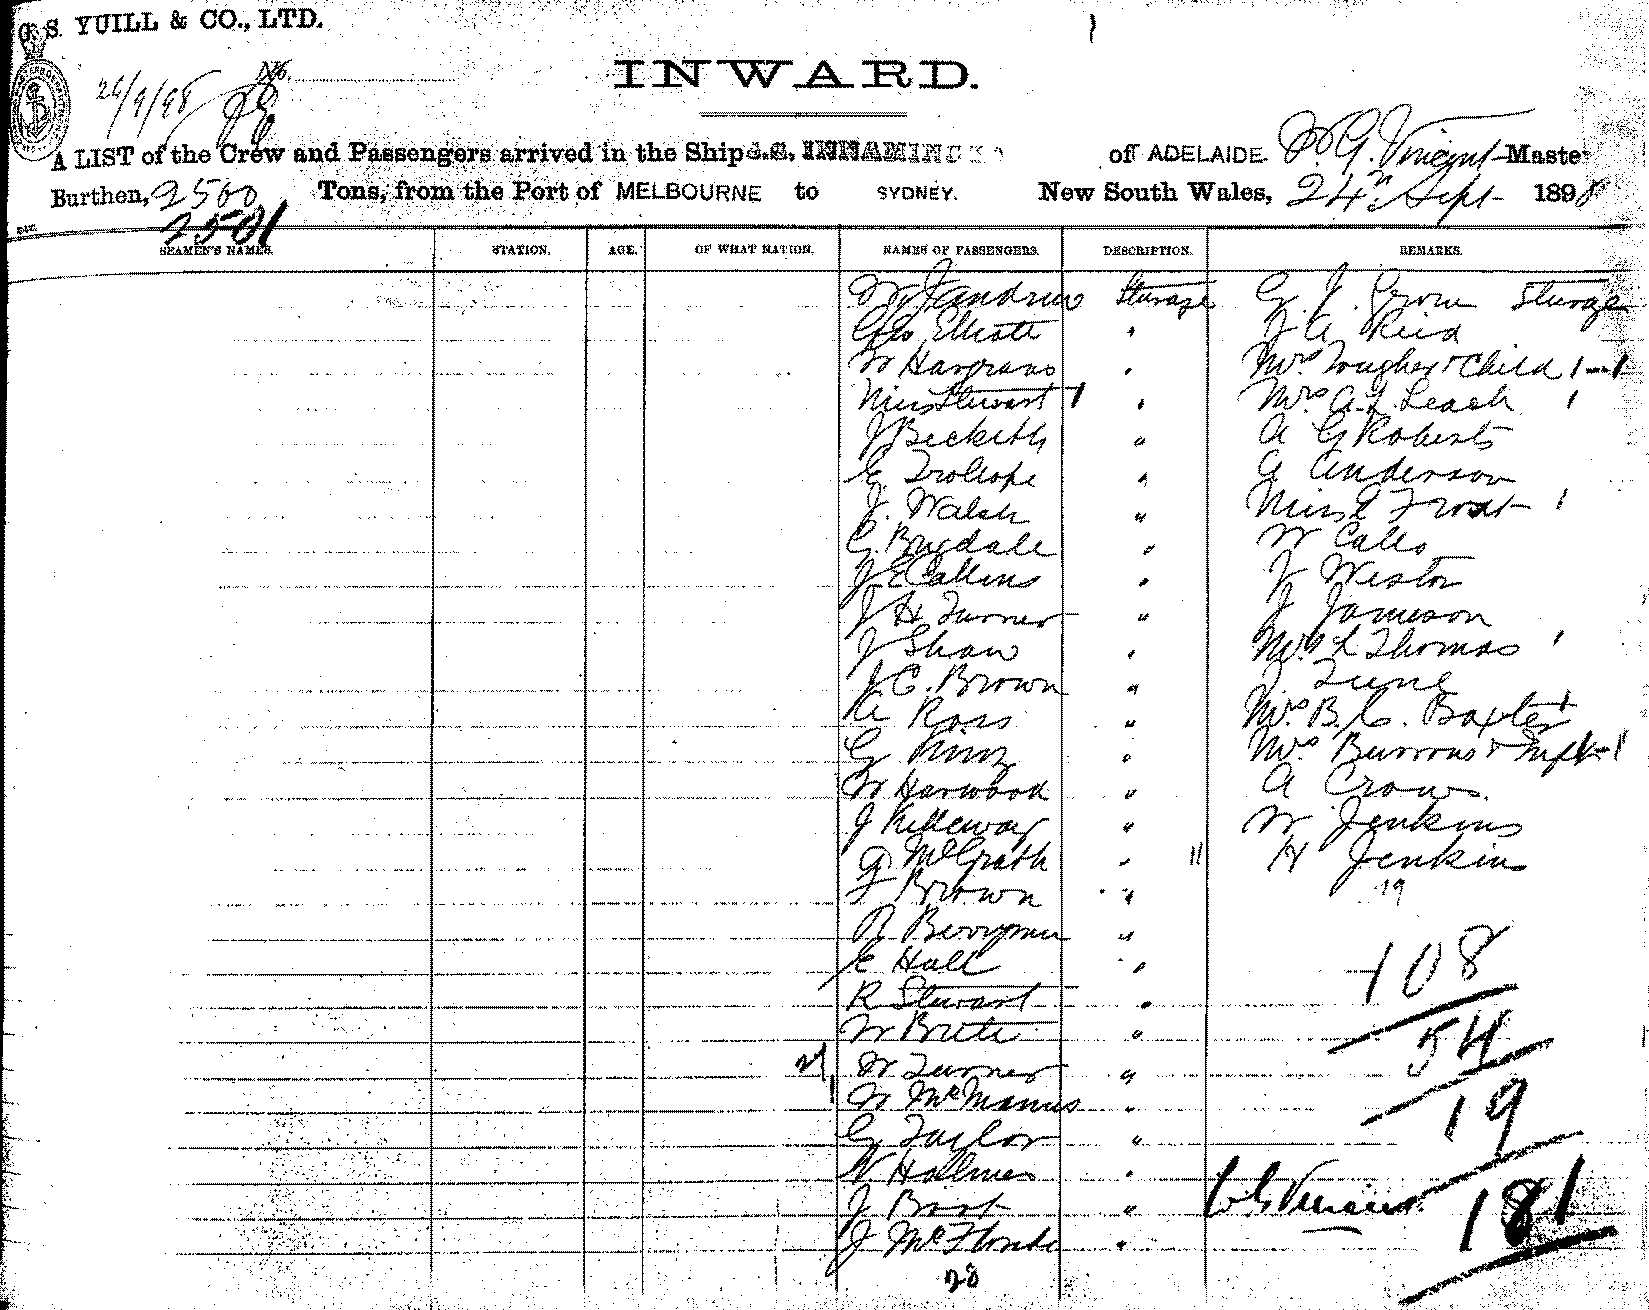 G. S. YUILL & CO., LTD.
No.
26/9/98
INWARD.
A LIST of the Crew and Passengers arrived in the Ship S.S. INNAMINCKA of ADELAIDE W G. Vincent Master
Burthen, 2500 Tons, from the Port of MELBOURNE to SYDNEY. New South Wales, 24th Sept 1898
2501
SEAMEN'S NAMES. STATION. AGE. OF WHAT NATION. NAMES OF PASSENGERS. DESCRIPTION. REMARKS.
W J Andrew Sturage G. J. Steerage
Geo Elliott " J A Reid
W Hargraves " Mrs Tougher & Child 1-1
Miss Stewart 1 " Mrs A. L. Leach 1
J Beckett " A G Roberts
E. Trollope " G Anderson
J. Walsh " Miss E Frost 1
G. Brigdale " W
J E Collins " J Weston
J H Turner " J Jameson
J Shaw " Mrs L Thomas 1
J. C. Brown " J
A Ross " Mrs B. C. Baxter 1
G King " Mrs Burrows & Inft 1-1
W Harwood " A Crows.
J Killeway " W Jenkins
G McGrath " 11 H Jenkin
F Brown " 19
R Berryman "
E Hall " 108
R Stewart "
W " 54
W Turner "
W McManus " 19
G Taylor "
W Holmes " W G Vincent
J Bast " 181
J "
28